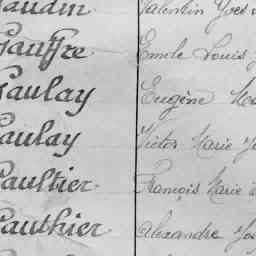 Valentin Yves
Gauffre Emile Louis
Gaulay Eugène
Gaulay Victor Marie
Gaultier François Marie
Gauthier Alexandre